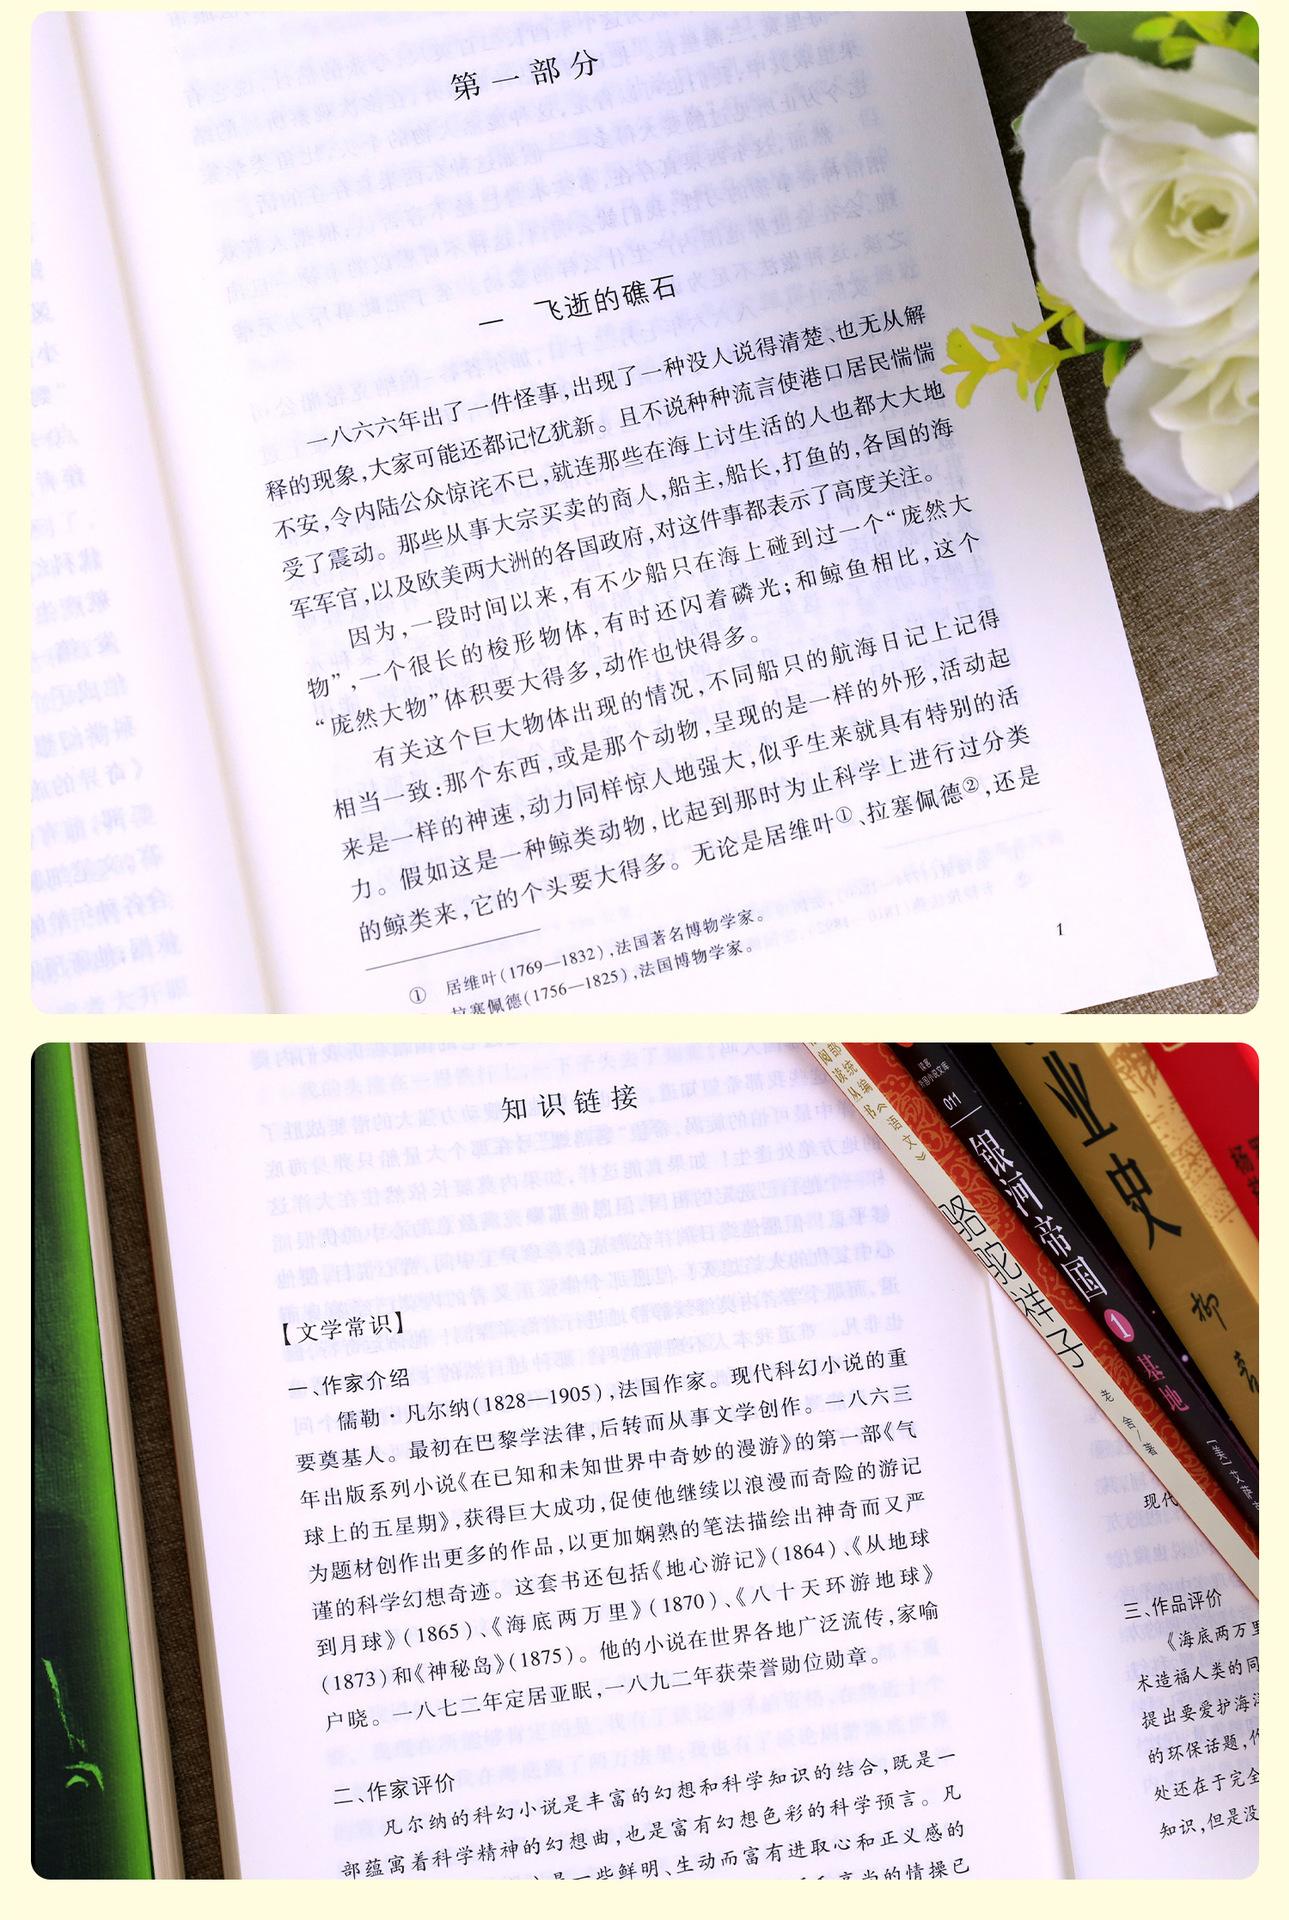 第一部分
一 飞逝的礁石
一八六六年出了一件怪事,出现了一种没人说得清楚、也无从解
释的现象,大家可能还都记忆犹新。且不说种种流言使港口居民惴惴
不安,令内陆公众惊诧不已,就连那些在海上讨生活的人也都大大地
受了震动。那些从事大宗买卖的商人,船主,船长,打鱼的,各国的海
军军官,以及欧美两大洲的各国政府,对这件事都表示了高度关注。
因为,一段时间以来,有不少船只在海上碰到过一个“庞然大
物”,一个很长的梭形物体,有时还闪着磷光;和鲸鱼相比,这个
“庞然大物”体积要大得多,动作也快得多。
有关这个巨大物体出现的情况,不同船只的航海日记上记得
相当一致:那个东西,或是那个动物,呈现的是一样的外形,活动起
来是一样的神速,动力同样惊人地强大,似乎生来就具有特别的活
力。假如这是一种鲸类动物,比起到那时为止科学上进行过分类
的鲸类来,它的个头要大得多。无论是居维叶①、拉塞佩德②,还是
① 居维叶(1769—1832),法国著名博物学家。
拉塞佩德(1756—1825),法国博物学家。
1
知识链接
【文学常识】
一、作家介绍
儒勒·凡尔纳(1828—1905),法国作家。现代科幻小说的重
要奠基人。最初在巴黎学法律,后转而从事文学创作。一八六三
年出版系列小说《在已知和未知世界中奇妙的漫游》的第一部《气
球上的五星期》,获得巨大成功,促使他继续以浪漫而奇险的游记
为题材创作出更多的作品,以更加娴熟的笔法描绘出神奇而又严
谨的科学幻想奇迹。这套书还包括《地心游记》(1864)、《从地球
到月球》(1865)、《海底两万里》(1870)、《八十天环游地球》
(1873)和《神秘岛》(1875)。他的小说在世界各地广泛流传,家喻
户晓。一八七二年定居亚眠,一八九二年获荣誉勋位勋章。
二、作家评价
凡尔纳的科幻小说是丰富的幻想和科学知识的结合,既是一
部蕴寓着科学精神的幻想曲,也是富有幻想色彩的科学预言。凡
是一些鲜明、生动而富有进取心和正义感的
高尚的情操已
现代
三、作品评价
《海底两万里
术造福人类的同
提出要爱护海洋
的环保话题,作
处还在于完全
知识,但是没
读统编《语文》
骆驼祥子
老舍/著
读客
外国小说文库
011
银河帝国
1
基地
[美]
业史
柳
杨